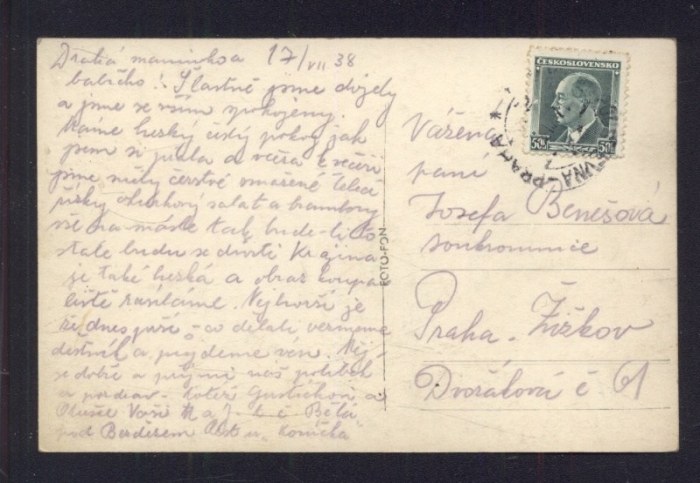 Drahá maminko a 17/VII 38
babičko! Šťastně jsme dojely
a jsme se vším spokojeny.
Máme hezký čistý pokoj jak
jsem si přála a včera k večeři
jsme měly čerstvé smažené telecí
řízky okurkový salát a brambory
vše na másle tak bude-li to
stále budu se divit. Krajina
je také hezká a obraz koupa
liště zasíláme. Nejhorší je
že dnes prší - co dělat vezmeme
deštník a pujdeme ven. Měj
se dobře a přijmi náš polibek
a pozdrav Gustičkovi a
Vaši M a J Bělá
pod Bezdězem u
FOTO-FON
ČESKOSLOVENSKO
50h 50h
PRAHA *
Vážená
paní
Josefa Benešová
soukromnice
Praha-Žižkov
Dvořákova č 61